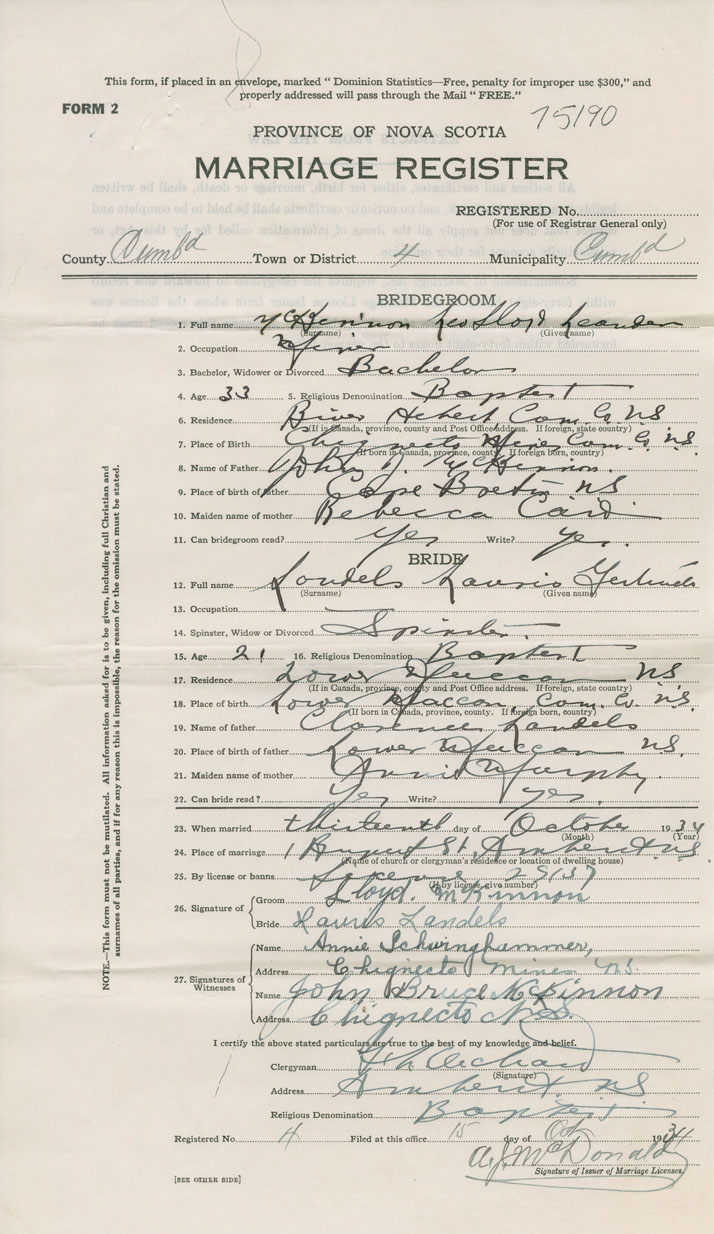 This form, if placed in an envelope, marked " Dominion Statistics—Free, penalty for improper use $300," and
properly addressed will pass through the Mail " FREE."
FORM 2
75190
PROVINCE OF NOVA SCOTIA
MARRIAGE REGISTER
REGISTERED No.
(For use of Registrar General only)
County Cumbd Town or District 4 Municipality Cumbd
BRIDEGROOM
1. Full name McKinnon Lloyd Leander
(Surname) (Given name)
2. Occupation Miner
3. Bachelor, Widower or Divorced Bachelor
4. Age 33 5. Religious Denomination Baptist
6. Residence River Hebert Cum. Co. NS
(If in Canada, province, county and Post Office address. If foreign, state country)
7. Place of Birth Chignecto Mines Cum. Co. NS
(If born in Canada, province, county. If foreign born, country)
8. Name of Father John J. McKinnon
9. Place of birth of father Cape Breton NS
10. Maiden name of mother Rebecca
11. Can bridegroom read? Yes Write? Yes.
BRIDE
12. Full name Landels Lauris Gertrude
(Surname) (Given name)
13. Occupation
14. Spinster, Widow or Divorced Spinster
15. Age 21 16. Religious Denomination Baptist
17. Residence Lower Maccan NS
(If in Canada, province, county and Post Office address. If foreign, state country)
18. Place of birth Lower Maccan, Cum. Co. NS.
(If born in Canada, province, county. If foreign born, country)
19. Name of father Clarence Landels
20. Place of birth of father Lower Maccan NS.
21. Maiden name of mother Annie Murphy.
22. Can bride read? Yes Write? Yes.
23. When married thirteenth day of October 1934
(Month) (Year)
24. Place of marriage 1 Rupert St, Amherst NS
(Name of church or clergyman's residence or location of dwelling house)
25. By license or banns License 25137
(If by license, give number)
26. Signature of Groom Lloyd. McKinnon
Bride Lauris Landels
27. Signatures of Witnesses Name Annie Schwinghammer,
Address Chignecto mines N.S.
Name John Bruce McKinnon
Address Chignecto N.S.
I certify the above stated particulars are true to the best of my knowledge and belief.
Clergyman Orchard
(Signature)
Address Amherst. NS
Religious Denomination Baptist
Registered No. 4 Filed at this office 15 day of Oct 1934
A.J. McDonald
Signature of Issuer of Marriage Licenses
[SEE OTHER SIDE]
NOTE.—This form must not be mutilated. All information asked for is to be given, including full Christian and
surnames of all parties, and if for any reason this is impossible, the reason for the omission must be stated.